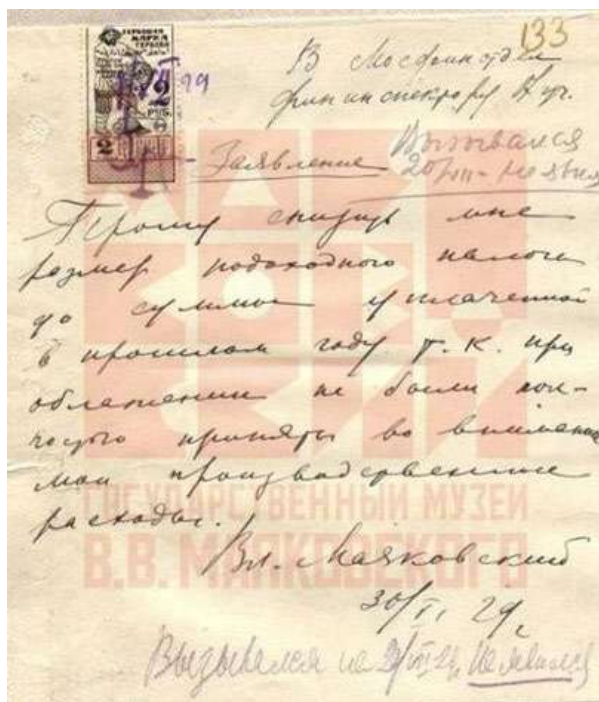 133
ГЕРБОВАЯ
МАРКА
2
РУБ.
2
В Мосфинотдел
фининспектору уч.
Вызывался
Заявление
не явился
Прошу снизить мне
размер подоходного налога
до суммы уплаченной
в прошлом году т.к. при
обложении не были пол-
ностью приняты во внимание
мои производственные
расходы.
Вл. Маяковский
30/ 29
Вызывался на не явился
МАЯ
КОВ
СКИЙ
ГОСУДАРСТВЕННЫЙ МУЗЕЙ
В.В. МАЯКОВСКОГО